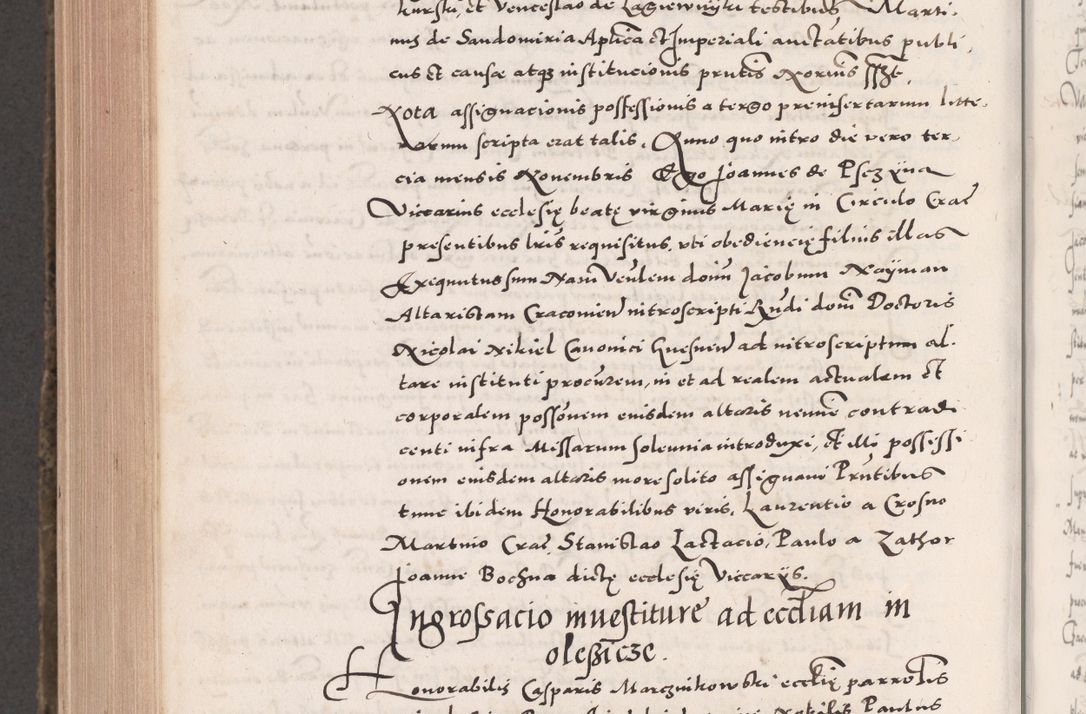 kurski, et Venceslao de Lagiewnyki testibus Marti-
nus de Sandomiria Aplica et Imperiali auctatibus publi
cus et causæ atq3 institucionis prntis Norius sszt.
Nota assignacionis possessionis a tergo preinsertarum litte-
rarum scripta erat talis. Anno quo intro die vero ter-
cia mensis Novembris Ego Joannes de Pseżyna
Viccarius ecclesię beatę virginis Marię in Circulo Crac
presentibus lris requisitus, uti obediencię filius illas
Exequutus sum Nam Venlem doim Jacobum Nayman
Altaristam Cracovien introscripti Rndi domi Doctoris
Nicolai Nikiel Canonici Gnesnen ad introscriptum al-
tare instituti procurem, in et ad realem actualem et
corporalem possonem eiusdem altaris nemine contradi
centi infra Missarum solennia introduxi, et illi possessi
onem eiusdem altaris more solito assignavi Prntibus
tunc ibidem Honorabilibus viris, Laurentio a Crosno
Martino Crac, Stanislao Lactacio, Paulo a Zathor
Joanne Bochna dictę ecclesię Viccarijs.
Ingrossacio investiture ad eccliam in
oleßicze.
Honorabilis Casparis Marcznikowski eccłię parrolis
Natalis Paulus